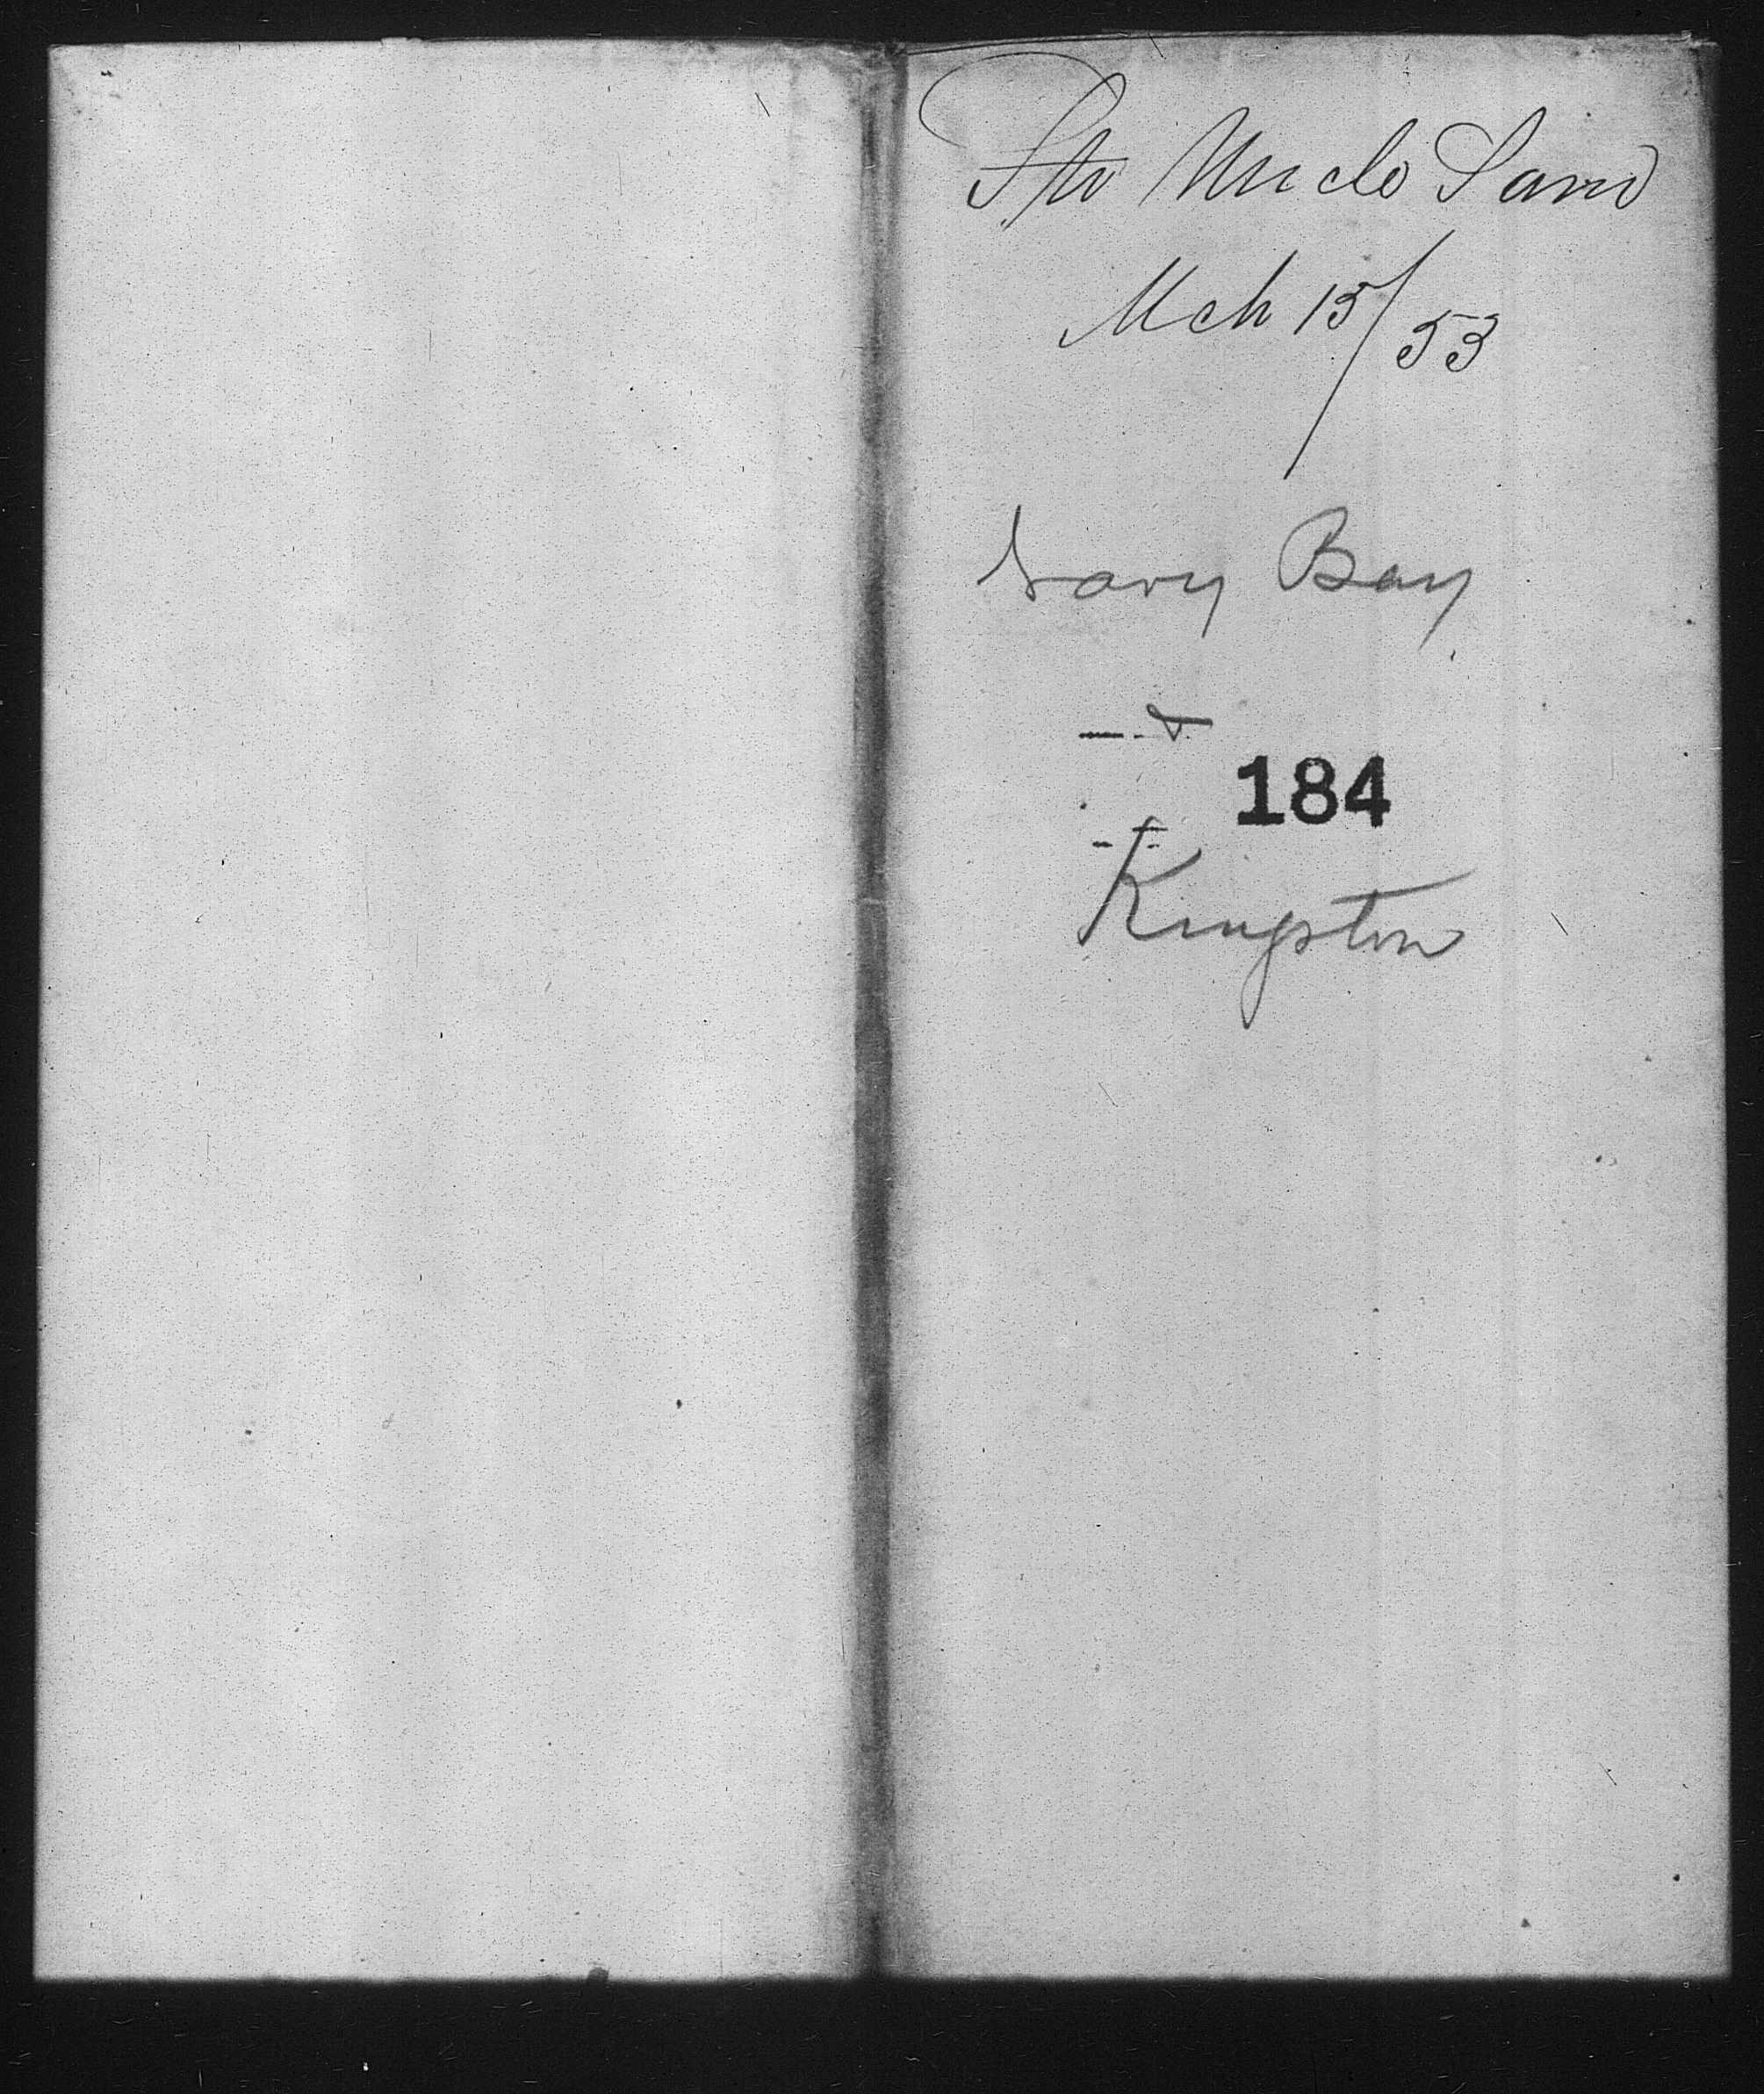 Str Uncle Sam
Mch 15/53
Navy Bay
184
Kingston